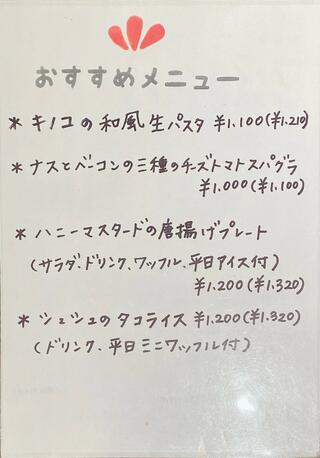 おすすめメニュー
* キノコの和風生パスタ ¥1.100(¥1.210)
* ナスとベーコンの三種のチーズトマトスパグラ
¥1.000(¥1.100)
* ハニーマスタードの唐揚げプレート
(サラダ、ドリンク、ワッフル、平日アイス付)
¥1.200(¥1.320)
* シェシュのタコライス ¥1.200(¥1.320)
(ドリンク、平日ミニワッフル付)